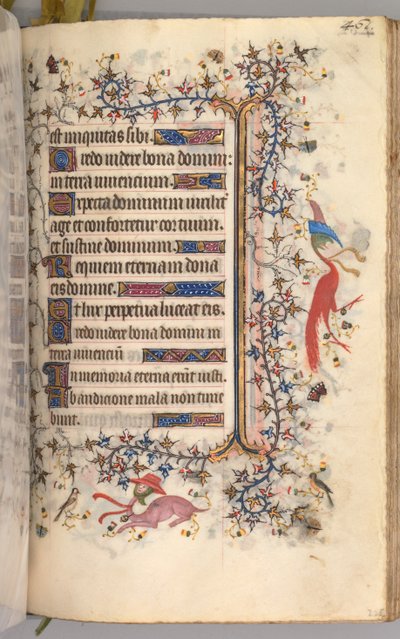 462
est iniquitas sibi.
Credo videre bona domini:
in terra viventium.
Expecta dominum virilit
age et confortetur cor tuum.
et sustine dominum.
Requiem eternam dona
eis domine.
Et lux perpetua luceat eis.
Credo videre bona domini in
terra viventium
In memoria eterna erunt iusti.
Ab audicione mala non time
bunt.